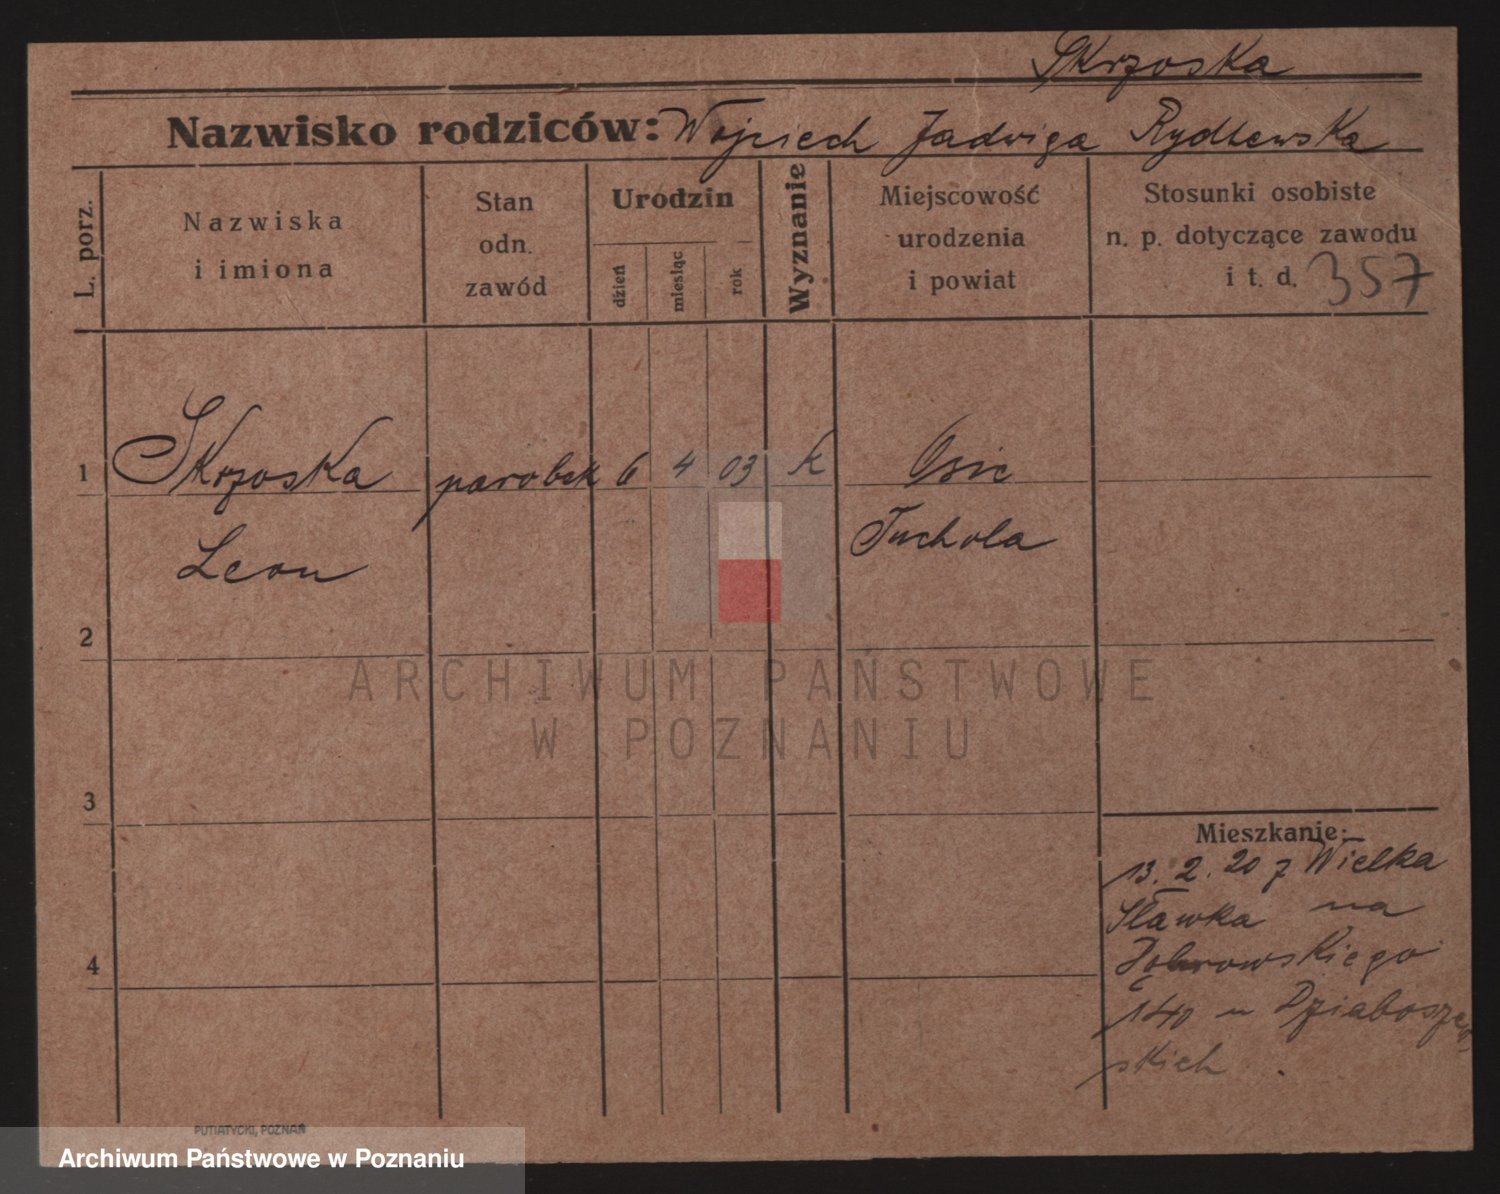 Skrzoska
Nazwisko rodziców: Wojciech Jadwiga Rydlewska
L. porz.
Nazwiska
i imiona
Stan
odn.
zawód
Urodzin
dzień
miesiąc
rok
Wyznanie
Miejscowość
urodzenia
i powiat
Stosunki osobiste
n. p. dotyczące zawodu
i t. d. 357
1 Skrzoska parobek 6 4 03 k Osie
Leon Tuchola
2
ARCHIWUM PAŃSTWOWE
W POZNANIU
3
Mieszkanie:
13. 2. 20 z Wielka
Sławka na
Dąbrowskiego
4
140 u
skich
PUTIATYCKI, POZNAŃ
Archiwum Państwowe w Poznaniu